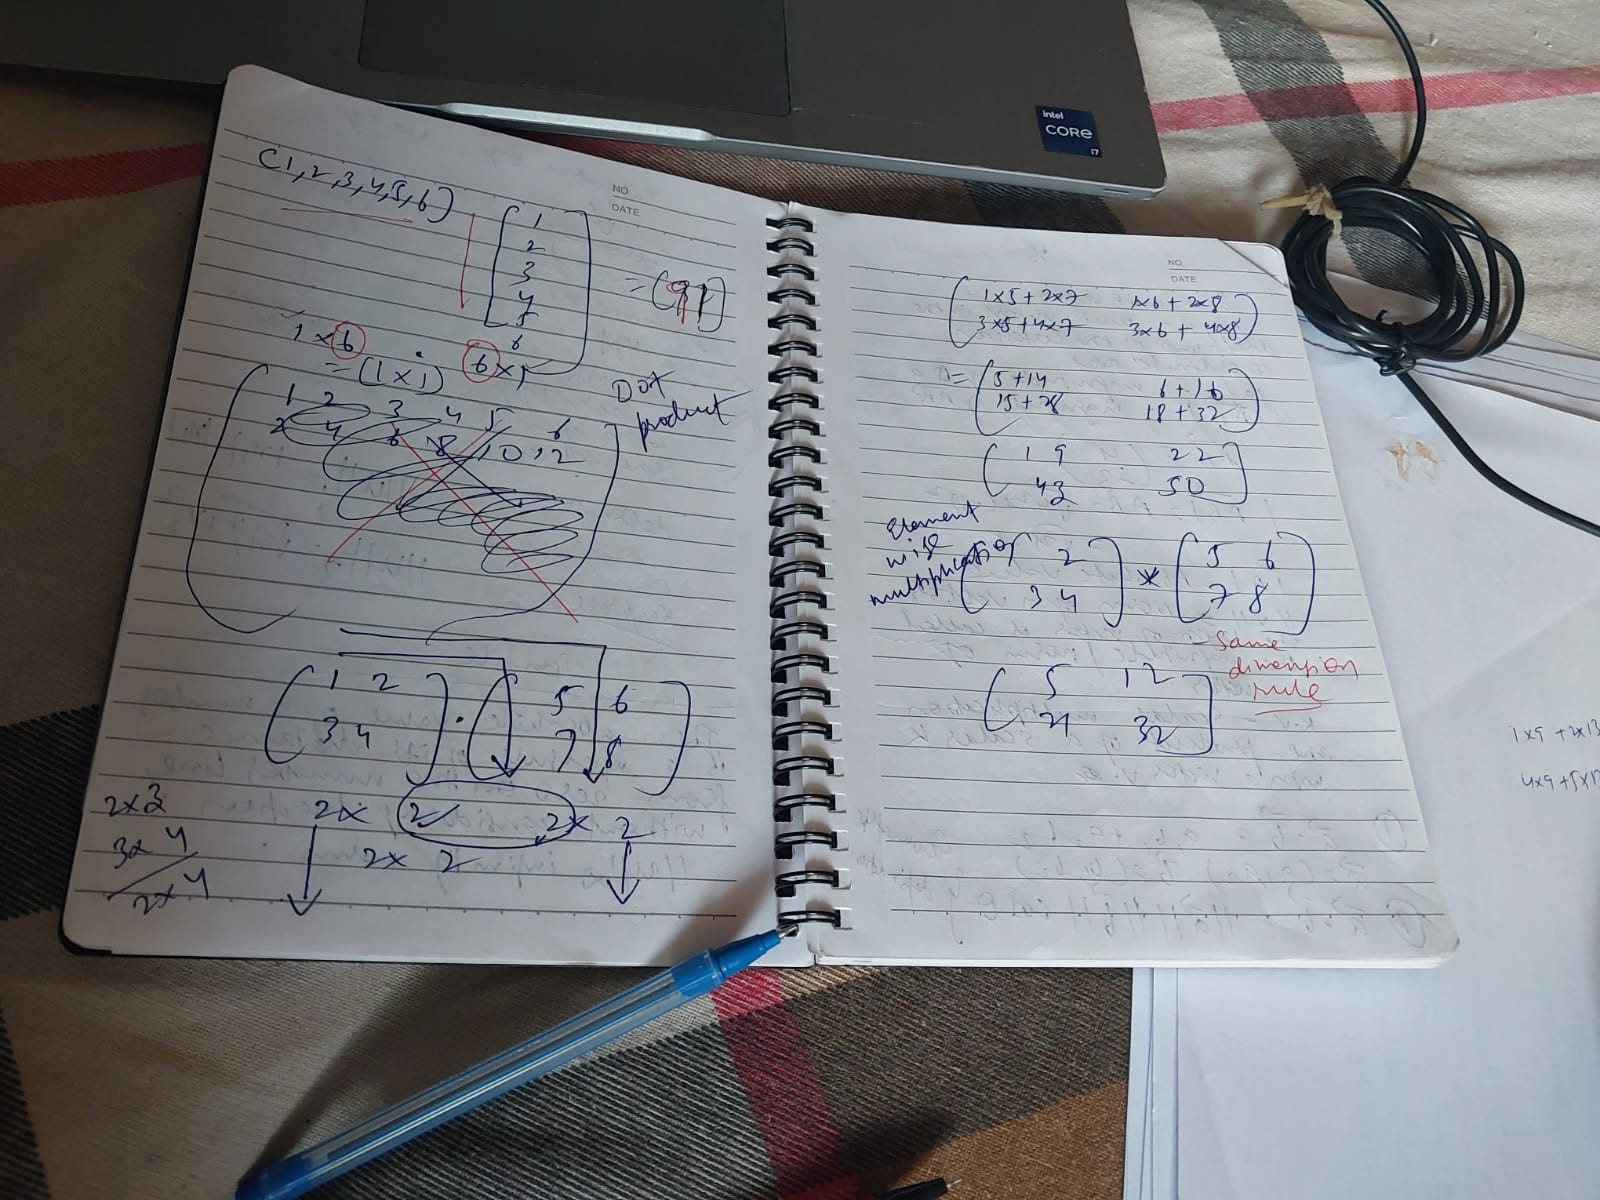 intel
CORE
i7
NO
DATE
(1,2,3,4,5,6)
1
2
3
4
5
6
= (91)
1 x 6
6 x 1
= (1 x 1)
Dot
product
1 2 3 4 5 6
2 4 6 8 10 12
1 2
3 4
.
5 6
7 8
2x3
3x4
2x4
2x 2 2x 2
2x 2
NO
DATE
1x5 + 2x7 1x6 + 2x8
3x5 + 4x7 3x6 + 4x8
= 5+14 6+16
15+28 18+32
19 22
43 50
Element
wise
multiplication
2
3 4
*
5 6
7 8
same
dimension
rule
5 12
21 32
1x9 + 2x13
4x9 + 5x1